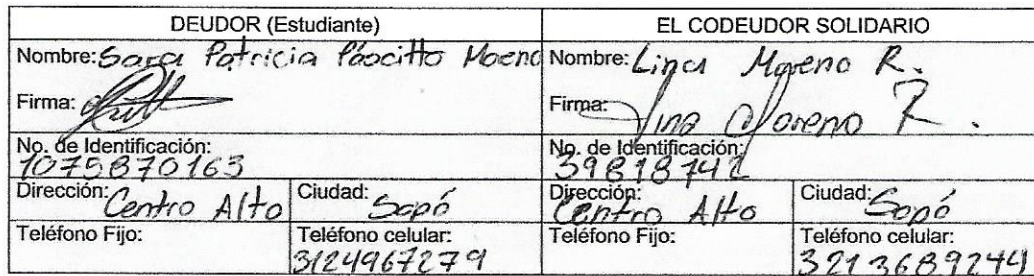 DEUDOR (Estudiante) EL CODEUDOR SOLIDARIO
Nombre: Sara Patricia Moeno Nombre: Lina Moreno R.
Firma: Firma: Lina Moreno R.
No. de Identificación: No. de Identificación:
1075870163
Dirección: Centro Alto Ciudad: Sopó Dirección: Centro Alto Ciudad: Sopó
Teléfono Fijo: Teléfono celular: Teléfono Fijo: Teléfono celular:
3124967279 3213689244